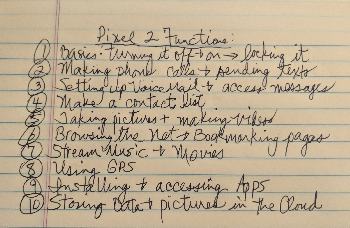 Pixel 2 Functions:
① Basics: turning it off + on → locking it
② Making phone calls + sending texts
③ Setting up Voice Mail + access messages
④ Make a contact list
⑤ Taking pictures + making videos
⑥ Browsing the Net → Bookmarking pages
⑦ Stream Music + Movies
⑧ Using GPS
⑨ Installing + accessing Apps
⑩ Storing Data + pictures in the Cloud